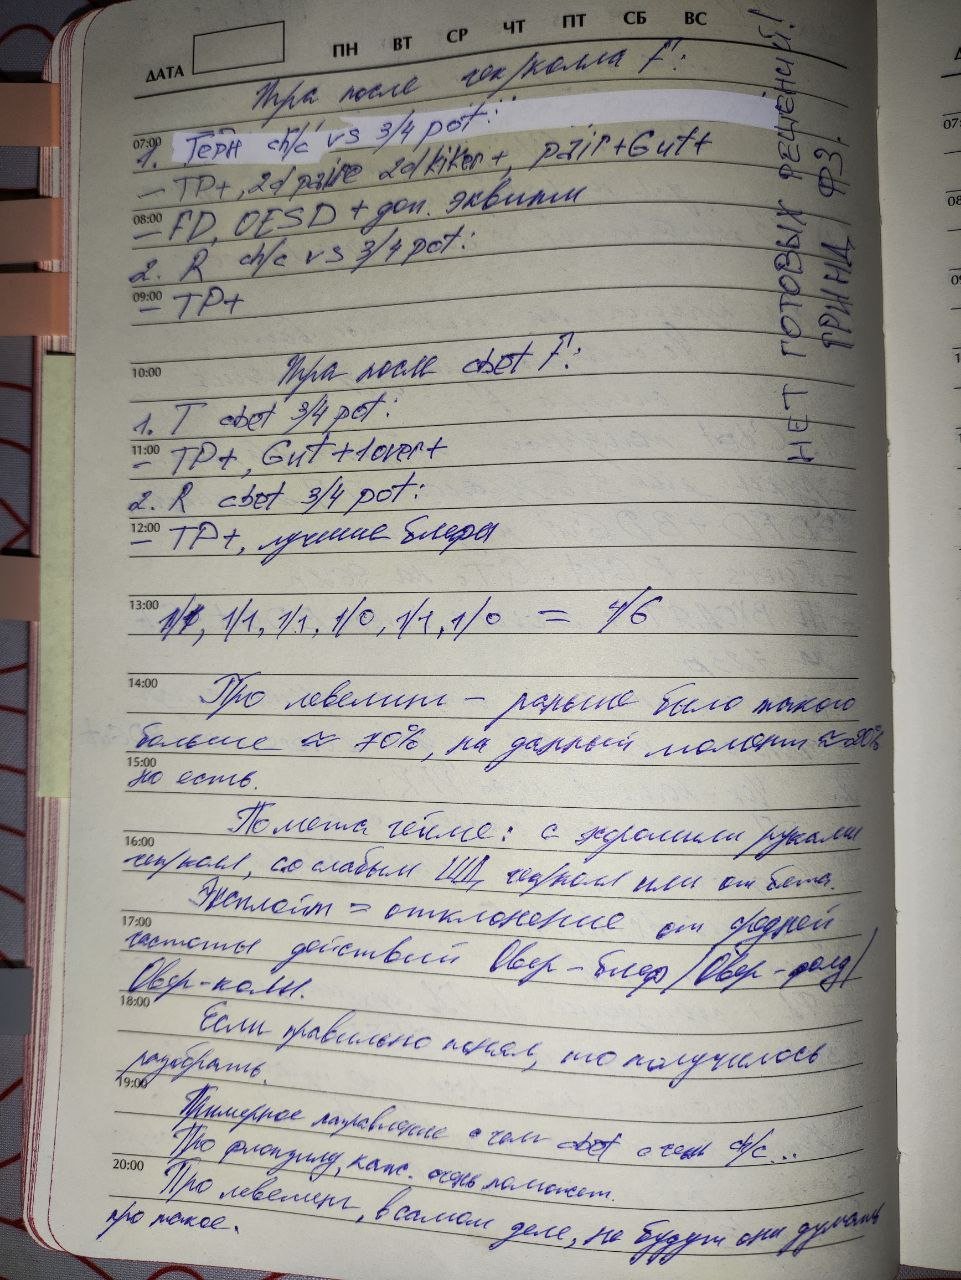 ДАТА ПН ВТ СР ЧТ ПТ СБ ВС
Игра после чек/колла F:
07:00
1. Терн ch/c vs 3/4 pot:
– TP+, 2d pair 2d kiker+, pair+Gut+
08:00
– FD, OESD + доп. эквити
2. R ch/c vs 3/4 pot:
09:00
– TP+
10:00
Игра после cbet F:
1. T cbet 3/4 pot:
11:00
– TP+, Gut+1over+
2. R cbet 3/4 pot:
12:00
– TP+, лучшие блефы
13:00
1/1, 1/1, 1/1, 1/0, 1/1, 1/0 = 4/6
14:00
Про левелинг – раньше было такого
больше ≈ 70%, на данный момент ≈20%
15:00
но есть.
Помета гейме: с хорошими руками
16:00
чек/колл, со слабым ШД чек/колл или от бета.
Эксплойт = отклонение от средней
17:00
частоты действий Овер-блеф/Овер-фолд/
Овер-колы.
18:00
Если правильно понял, то получилось
разобрать.
19:00
Примерное направление с чем cbet с чем ch/c...
Про флопзилу, каж. очень поможет.
20:00
Про левелинг, в самом деле, не будут они думать
про такое.
НЕТ ГОТОВЫХ РЕШЕНИЙ!
ГРИНД ФЗ.